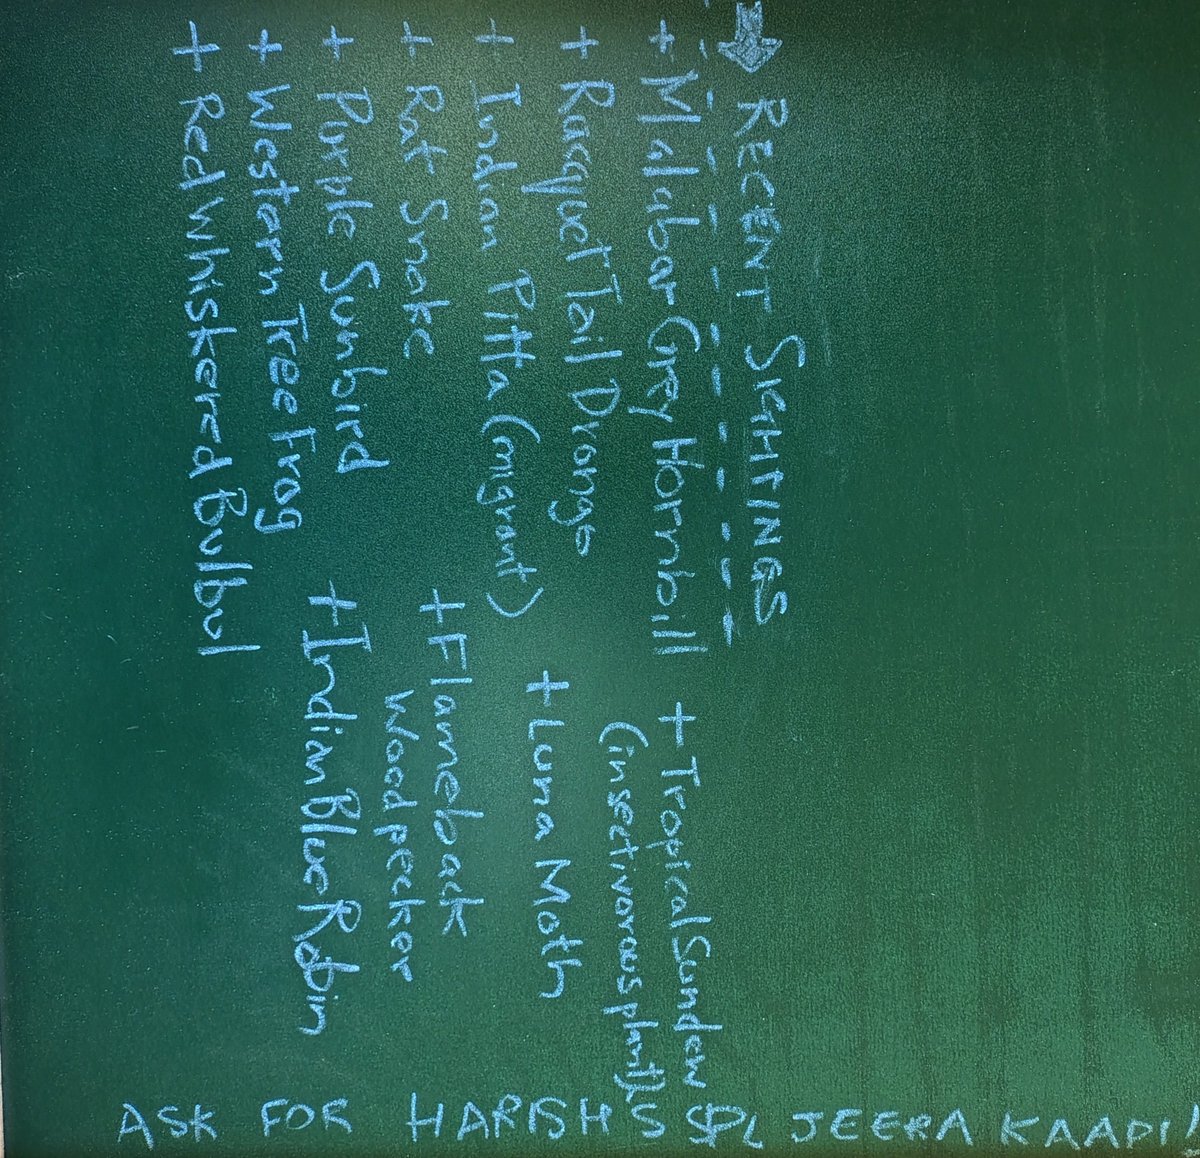 RECENT SIGHTINGS
+ Malabar Grey Hornbill
+ Racquet Tail Drongo
+ Indian Pitta (migrant)
+ Rat Snake
+ Purple Sunbird
+ Western Tree Frog
+ Red Whiskered Bulbul
+ Tropical Sundew
(insectivorous plant)
+ Luna Moth
+ Flameback
Woodpecker
+ Indian Blue Robin
ASK FOR HARISH'S SPL JEERA KAAPI!